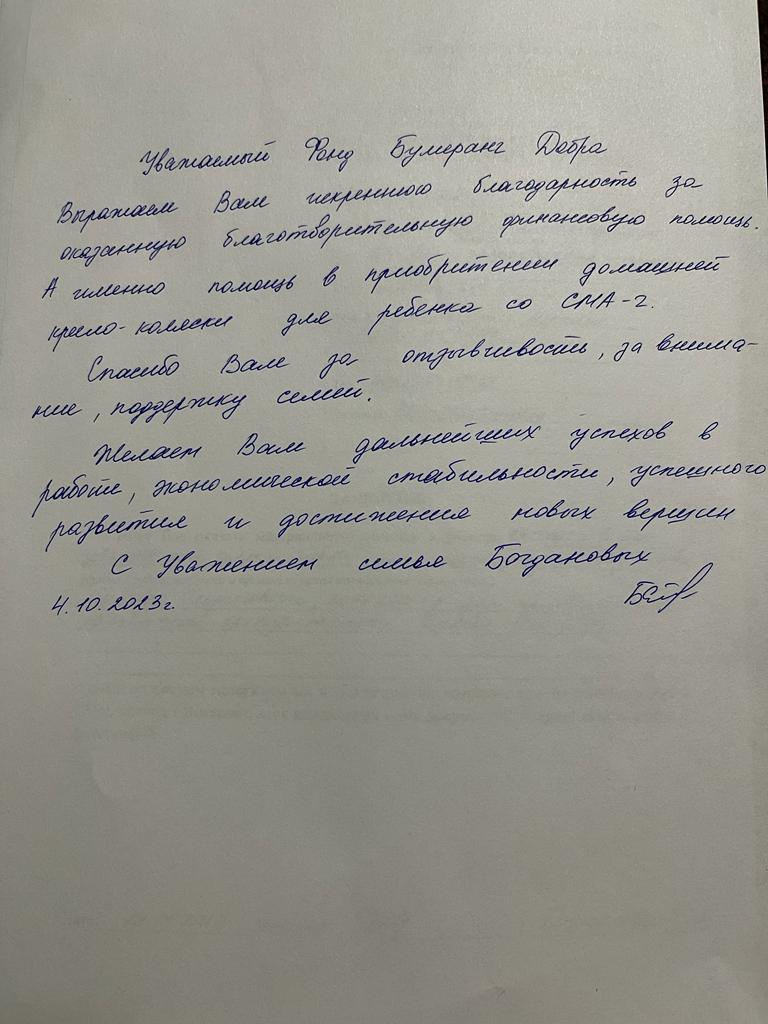 Уважаемый Фонд Бумеранг Добра
Выражаем Вам искреннюю благодарность за
оказанную благотворительную финансовую помощь.
А именно помощь в приобритении домашней
кресло-коляски для ребенка со СМА-2.
Спасибо Вам за отзывчивость, за внима-
ние, поддержку семей.
Желаем Вам дальнейших успехов в
работе, экономической стабильности, успешного
развития и достижения новых вершин
С Уважением семья Богдановых
4.10.2023г.